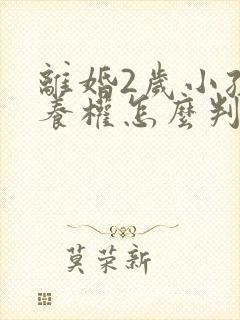 離婚2歲小孩
養權怎麼判
莫荣新